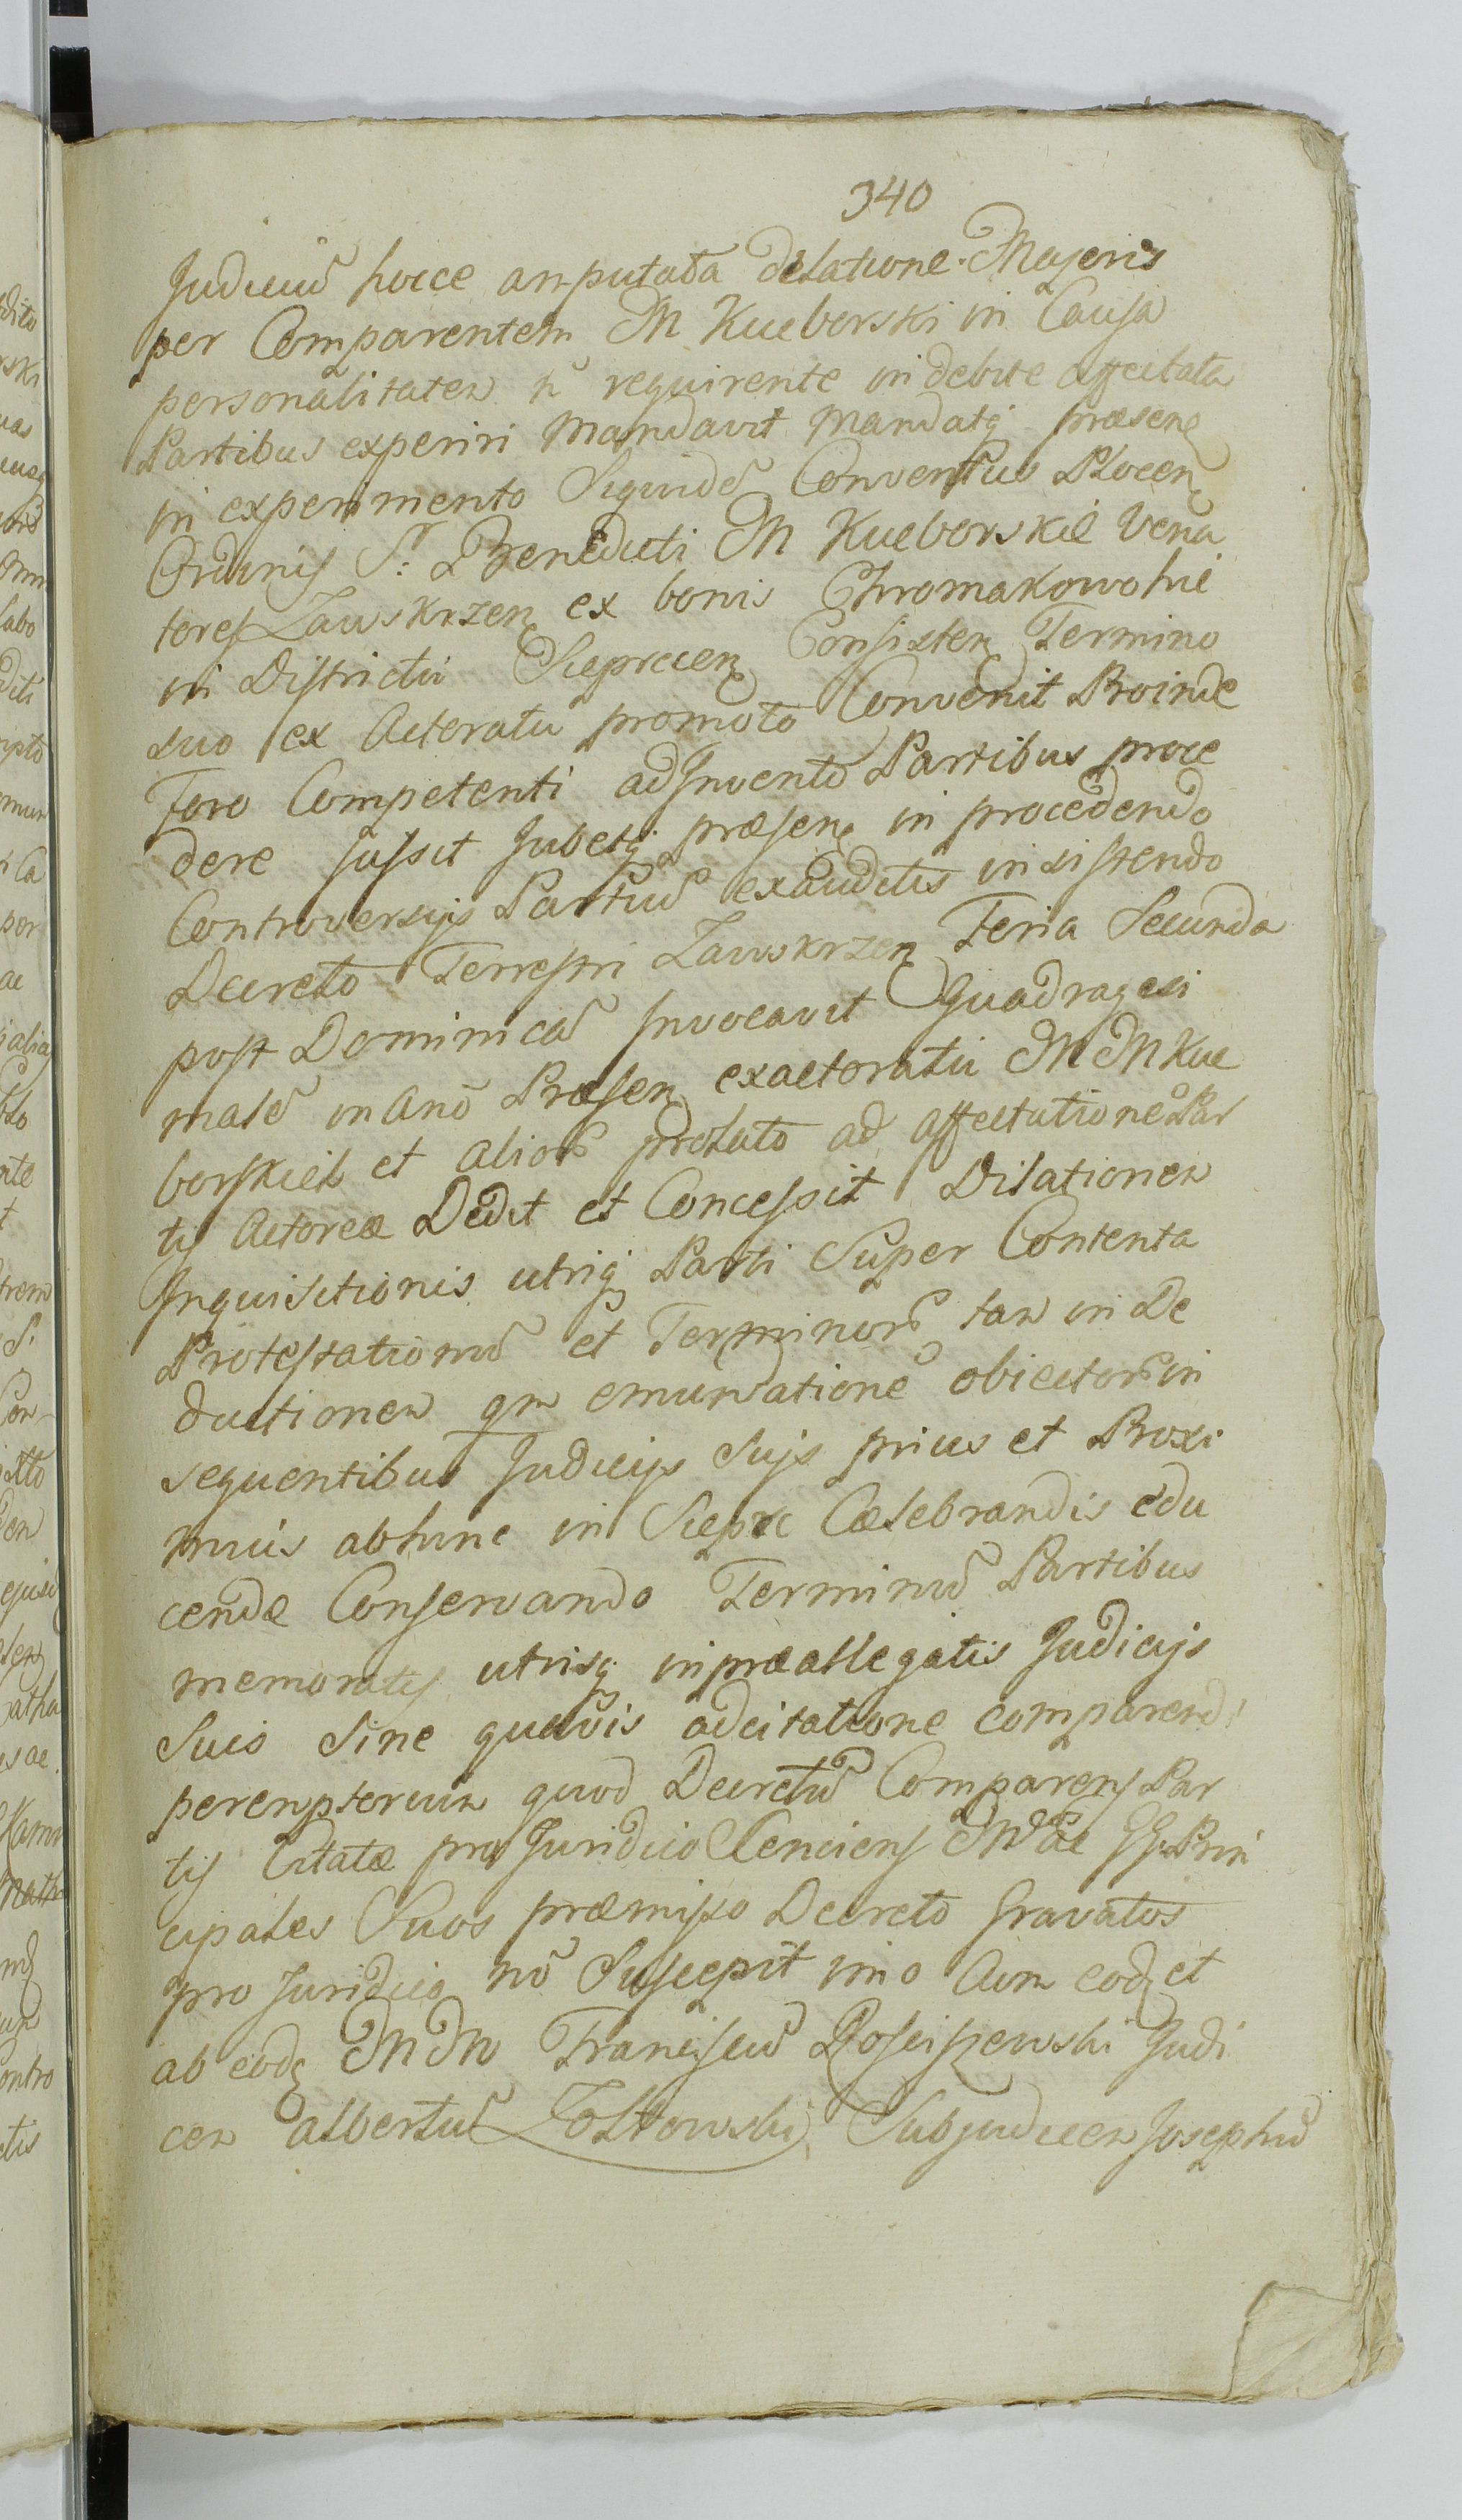 340
Judiciū hocce amputata dilatione Majoris
per Comparentem M Kucborski in Causa
personalitatem ñ requirente indebite affectata
Partibus experiri Mandavit mandatq praesen
in experimento Siquidē Conventus Plocen
Ordinis S. Benedicti M Kucborskie Vena
tores Zawskrzen ex bonis Chromakowo hic
in Districtu Sieprcien Consisten Termino
suo ex Actoratu promoto Convenit Proinde
Foro Competenti adJnvento Partibus proce
dere jussit Jubetq praesen in procedendo
Controversijs Partiū exauditis insistendo
Decreto Terrestri Zawskrzen Feria Secunda
post Dominicā Jnvocavit Quadragesi
malē in Anō Praesen ex actoratu M M Kuc
borskich et aliorū prolato ad affectationē Par
tis Actoreae Dedit et Concessit Dilationem
Jnquisitionis utriq Parti Super Contenta
Protestationū et Terminorū tam in De
ductionem qm emundationē obiectorū in
sequentibus Judicijs Sujs prius et Proxi
mius abhinc in Sieprc Caelebrandis edu
cendae Conservando Terminū Partibus
memoratis utrisq in praeallegatis Judicijs
Suis Sine quavis adcitatione comparend
peremptorium quod Decretū Comparens Par
tis Citatae pro Juridico Cenciens
cipales Suos praemisso Decreto Gravatos
pro Juridico nō Suscepit imo Aim eod et
ab eod MM Franciscū Rosciszewski Judi
cem Albertū Zoltowski Subjudicem Josephū